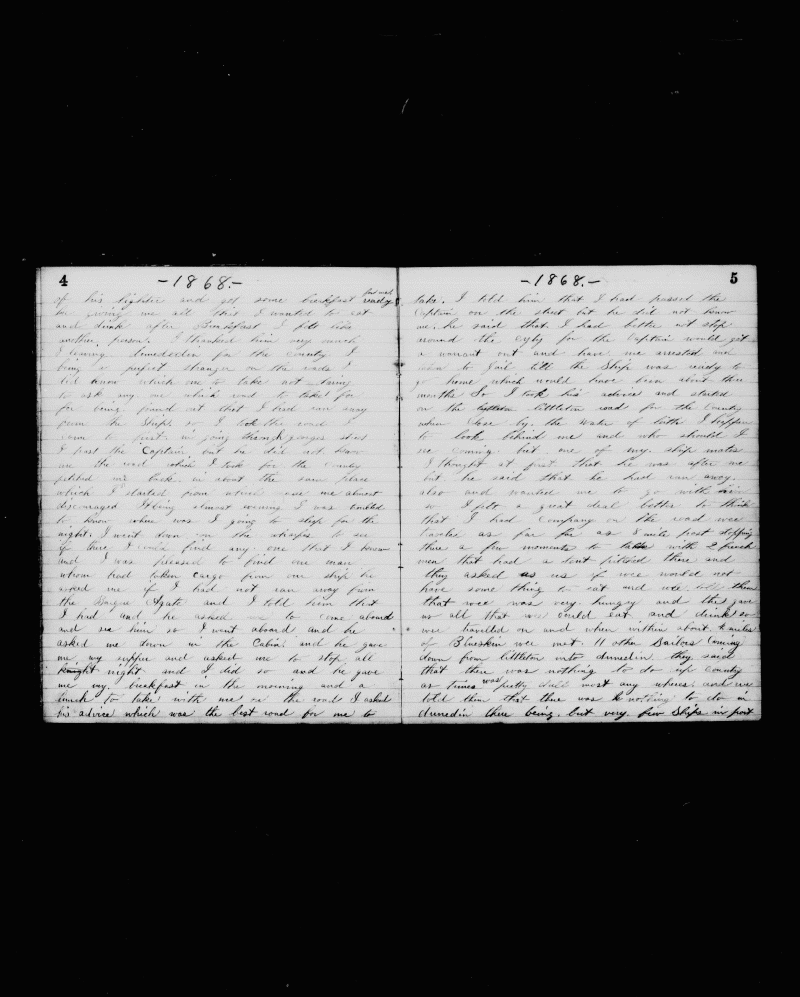 4
-1868.-
of his lighter and get some breakfast and was ready
be giving me all that I wanted to eat
and drink after Breakfast I felt like
another person. I thanked him very much
I leaving for the country I
being a perfect stranger on the roads I
did know which me to take not
to ask any one which road to take for
for being found out that I had ran away
from the Ship, so I took the road I
came to first. in going through st
I past the Captain but he did not know
me the road which I took for the country
me back in about the same place
which I started from which me almost
discouraged It being almost evening I was
to know where was I going to sleep for the
night. I went down on the wharfes to see
if there I could find any one that I knew
and I was pleased to find one man
whom had taken cargo from our ship he
asked me if I had not ran away from
the Barque Agate and I told him that
I had and he asked me to come aboard
and see him so I went aboard and he
asked me down in the Cabin and he gave
me my supper and asked me to stop all
night and I did so and he gave
me my breakfast in the morning and a
lunch to take with me on the road I asked
his advice which was the best road for me to
5
-1868.-
take. I told him that I had passed the
Captain on the street but he did not know
me. he said that I had better not stop
around the City for the Captain would get
a warrant out and have me arrested and
taken to Jail till the Ship was ready to
go home which would have been about three
months So I took his advice and started
on the littleton road for the Country
when close by the water of I happen
to look behind me and who should I
see coming but one of my ship mates
I thought at first that he was after me
but he said that he had ran away.
also and wanted me to go with him
so I felt a great deal better to think
that I had Company on the road wee
travelee as far for as 8 mile post stopping
there a few moments to with 2 french
men that had a tent pitched there and
they asked us if wee would not
have some thing to eat and wee told them
that wee was very hungry and they gave
us all that wee could eat and drink so
wee travelled on and when within about 2 miles
of Blueskin wee met 11 other Sailors Coming
down from littleton into dunedin they said
that there was nothing to do up country
as times was pretty dull most any wheres and we
told them that there was nothing to do in
dunedin there being but very few Ships in port